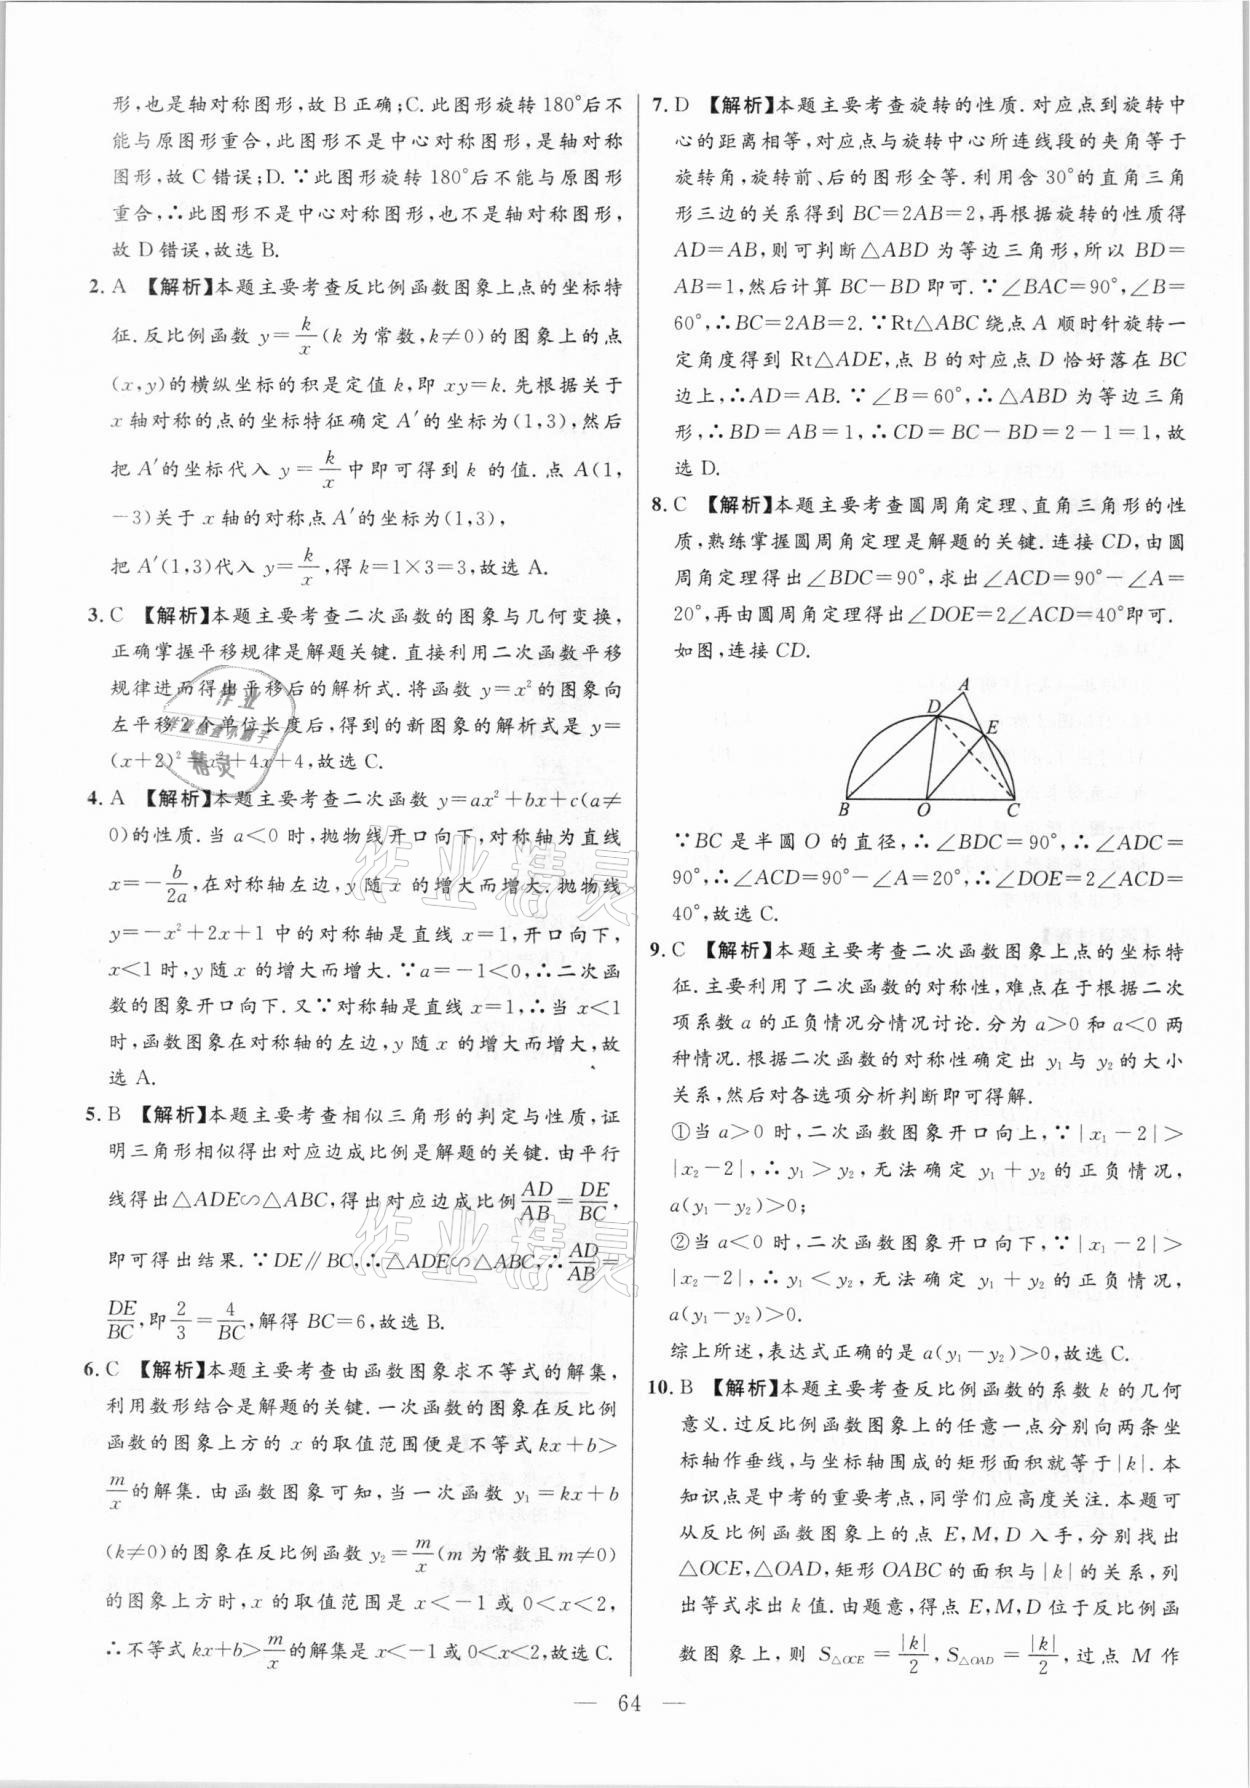 形,也是轴对称图形,故 B 正确;C. 此图形旋转 180°后不
能与原图形重合,此图形不是中心对称图形,是轴对称
图形,故 C 错误;D. ∵此图形旋转 180°后不能与原图形
重合,∴此图形不是中心对称图形,也不是轴对称图形,
故 D 错误,故选 B.
2. A 【解析】本题主要考查反比例函数图象上点的坐标特
征. 反比例函数 y=k/x(k 为常数,k≠0)的图象上的点
(x,y)的横纵坐标的积是定值 k,即 xy=k. 先根据关于
x 轴对称的点的坐标特征确定 A′的坐标为(1,3),然后
把 A′的坐标代入 y=k/x中即可得到 k 的值. 点 A(1,
-3)关于 x 轴的对称点 A′的坐标为(1,3),
把 A′(1,3)代入 y=k/x,得 k=1×3=3,故选 A.
3. C 【解析】本题主要考查二次函数的图象与几何变换,
正确掌握平移规律是解题关键. 直接利用二次函数平移
规律进而得出平移后的解析式. 将函数 y=x²的图象向
左平移 2 个单位长度后,得到的新图象的解析式是 y=
(x+2)²=x²+4x+4,故选 C.
4. A 【解析】本题主要考查二次函数 y=ax²+bx+c(a≠
0)的性质. 当 a<0 时,抛物线开口向下,对称轴为直线
x=-b/2a,在对称轴左边,y 随 x 的增大而增大. 抛物线
y=-x²+2x+1 中的对称轴是直线 x=1,开口向下,
x<1 时,y 随 x 的增大而增大. ∵a=-1<0,∴二次函
数的图象开口向下. 又∵对称轴是直线 x=1,∴当 x<1
时,函数图象在对称轴的左边,y 随 x 的增大而增大,故
选 A.
5. B 【解析】本题主要考查相似三角形的判定与性质,证
明三角形相似得出对应边成比例是解题的关键. 由平行
线得出△ADE∽△ABC,得出对应边成比例AD/AB=DE/BC,
即可得出结果. ∵DE∥BC,∴△ADE∽△ABC,∴AD/AB=
DE/BC,即2/3=4/BC,解得 BC=6,故选 B.
6. C 【解析】本题主要考查由函数图象求不等式的解集,
利用数形结合是解题的关键. 一次函数的图象在反比例
函数的图象上方的 x 的取值范围便是不等式 kx+b>
m/x的解集. 由函数图象可知,当一次函数 y₁=kx+b
(k≠0)的图象在反比例函数 y₂=m/x(m 为常数且m≠0)
的图象上方时,x 的取值范围是 x<-1 或 0<x<2,
∴不等式 kx+b>m/x的解集是 x<-1 或 0<x<2,故选 C.
7. D 【解析】本题主要考查旋转的性质. 对应点到旋转中
心的距离相等,对应点与旋转中心所连线段的夹角等于
旋转角,旋转前、后的图形全等. 利用含 30°的直角三角
形三边的关系得到 BC=2AB=2,再根据旋转的性质得
AD=AB,则可判断△ABD 为等边三角形,所以 BD=
AB=1,然后计算 BC-BD 即可. ∵∠BAC=90°,∠B=
60°,∴BC=2AB=2. ∵Rt△ABC 绕点 A 顺时针旋转一
定角度得到 Rt△ADE,点 B 的对应点 D 恰好落在 BC
边上,∴AD=AB. ∵∠B=60°,∴△ABD 为等边三角
形,∴BD=AB=1,∴CD=BC-BD=2-1=1,故
选 D.
8. C 【解析】本题主要考查圆周角定理、直角三角形的性
质,熟练掌握圆周角定理是解题的关键. 连接 CD,由圆
周角定理得出∠BDC=90°,求出∠ACD=90°-∠A=
20°,再由圆周角定理得出∠DOE=2∠ACD=40°即可.
如图,连接 CD.
A
D
E
B
O
C
∵BC 是半圆 O 的直径,∴∠BDC=90°,∴∠ADC=
90°,∴∠ACD=90°-∠A=20°,∴∠DOE=2∠ACD=
40°,故选 C.
9. C 【解析】本题主要考查二次函数图象上点的坐标特
征. 主要利用了二次函数的对称性,难点在于根据二次
项系数 a 的正负情况分情况讨论. 分为 a>0 和 a<0 两
种情况. 根据二次函数的对称性确定出 y₁与 y₂的大小
关系,然后对各选项分析判断即可得解.
①当 a>0 时,二次函数图象开口向上,∵|x₁-2|>
|x₂-2|,∴y₁>y₂,无法确定 y₁+y₂的正负情况,
a(y₁-y₂)>0;
②当 a<0 时,二次函数图象开口向下,∵|x₁-2|>
|x₂-2|,∴y₁<y₂,无法确定 y₁+y₂的正负情况,
a(y₁-y₂)>0.
综上所述,表达式正确的是 a(y₁-y₂)>0,故选 C.
10. B 【解析】本题主要考查反比例函数的系数 k 的几何
意义. 过反比例函数图象上的任意一点分别向两条坐
标轴作垂线,与坐标轴围成的矩形面积就等于|k|. 本
知识点是中考的重要考点,同学们应高度关注. 本题可
从反比例函数图象上的点 E,M,D 入手,分别找出
△OCE,△OAD,矩形 OABC 的面积与|k|的关系,列
出等式求出 k 值. 由题意,得点 E,M,D 位于反比例函
数图象上,则 S△OCE=|k|/2,S△OAD=|k|/2,过点 M 作
— 64 —
作业
作业检查小助手
精灵
作业精灵
作业精灵